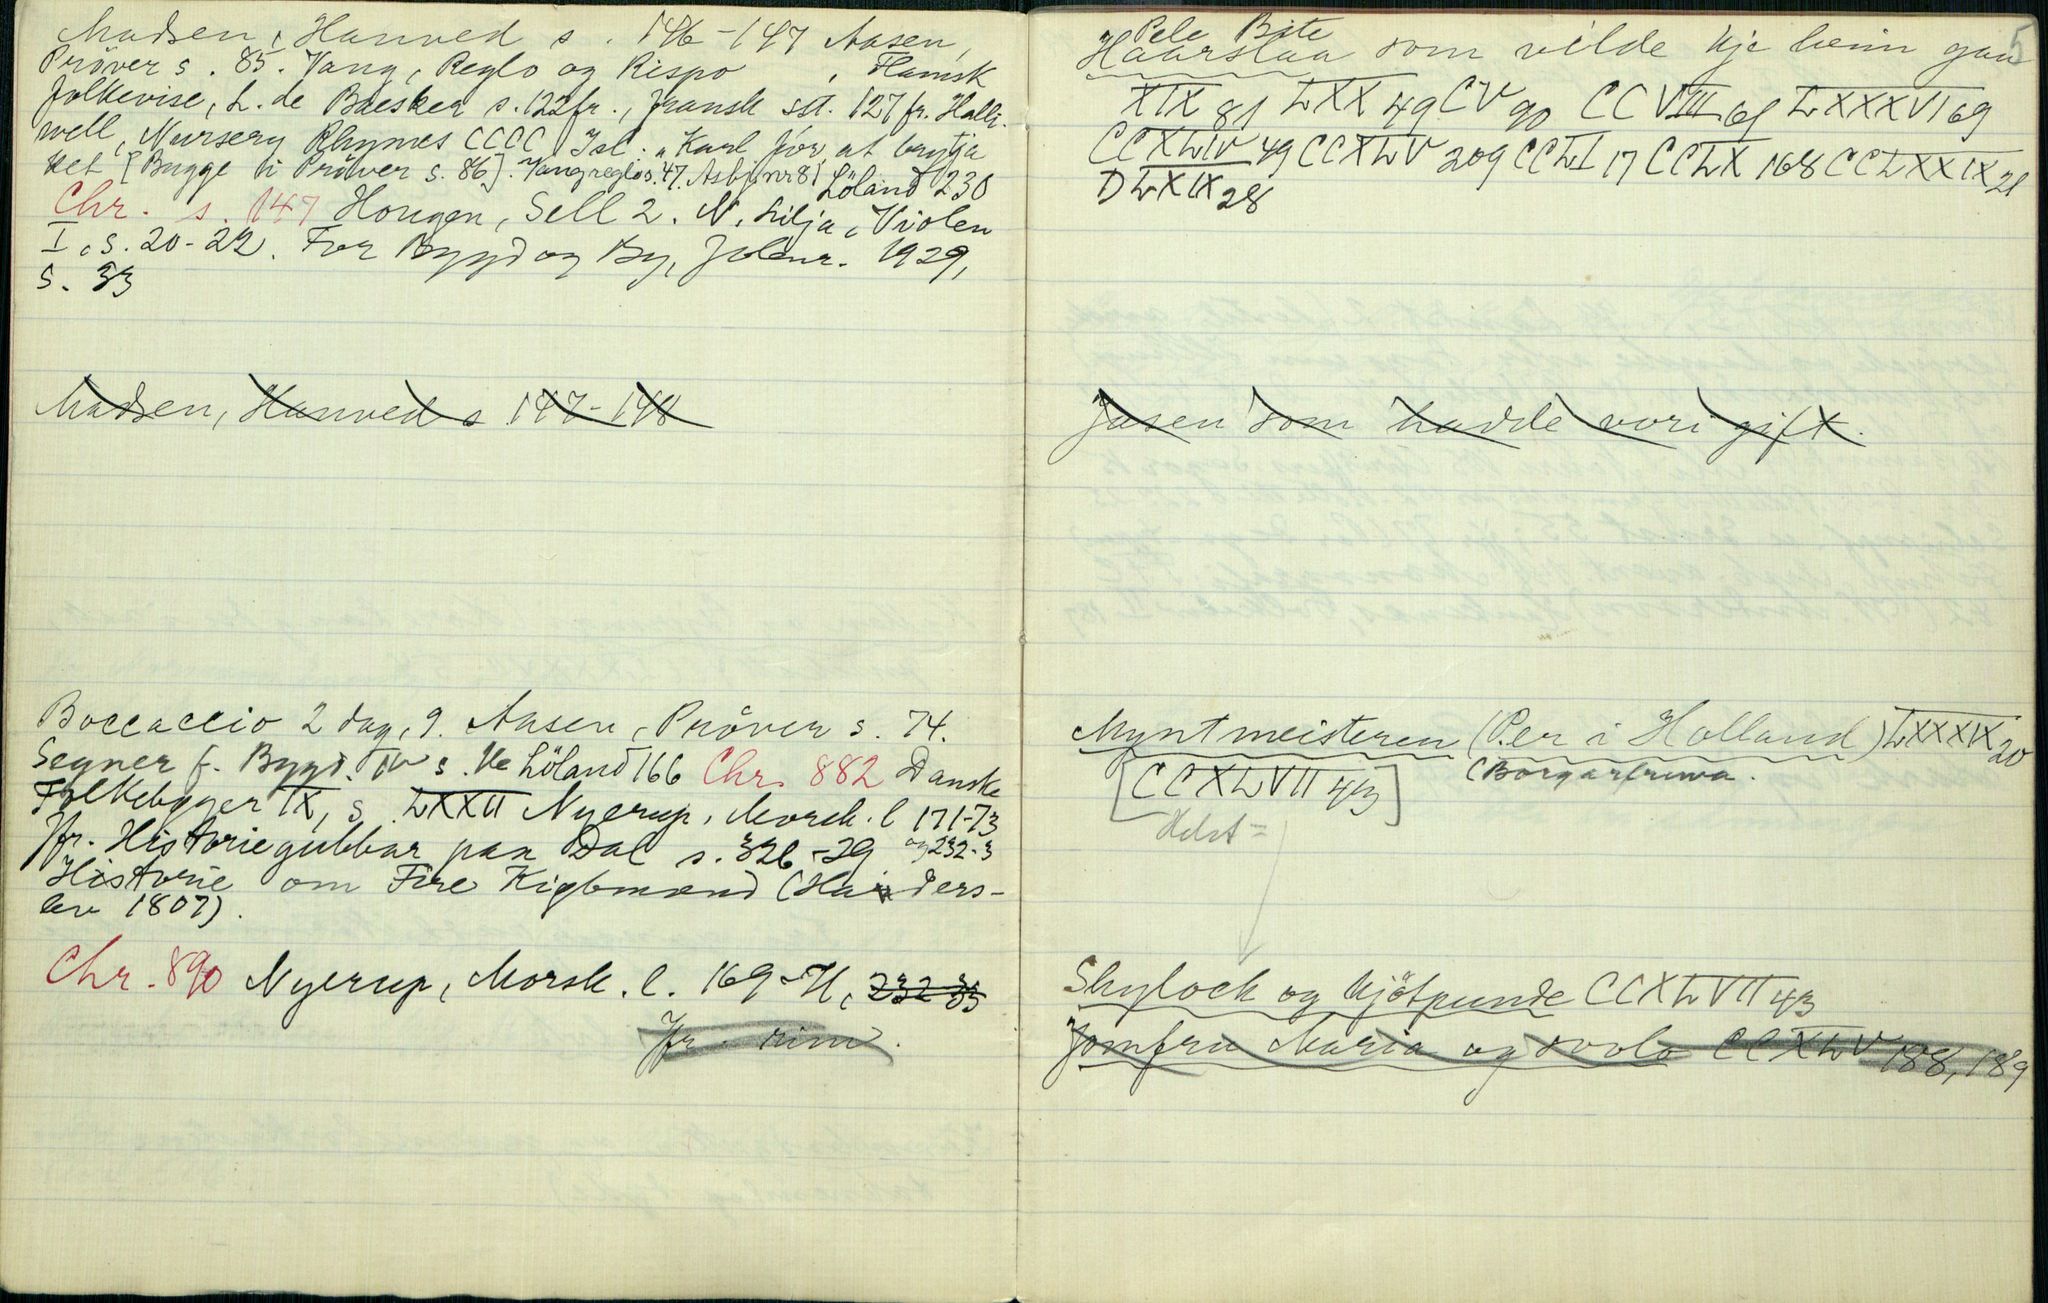 Madsen, Hanved s. 146-147 Aasen,
Prøver s. 85. Vang, Reglo og Rispo, Flamsk
folkevise, L. de Baecker s. 122 fr., fransk sst. 127 fr. Halli-
well, Nursery Rhymes CCCC Isl. "Karl fór at brytja
ket [Bugge i Prøver s. 86]. Vang reglo s. 47. Asbj. nr 81 Löland 230
Chr. s. 147 Hougen, Sell 2. N. Lilja, Violen
I, s. 20-22. For Bygd og By, Jolenr. 1929,
s. 33
Madsen, Hanved s. 147-148
Boccaccio 2 dag, 9. Aasen, Prøver s. 74.
Segner f. Bygd. IV s. Löland 166 Chr. 882 Danske
Folkebøger IX, s. LXXII Nyerup, Morsk. l 171-73
og 232-3
Jfr. Historiegubbar paa Dal s. 326-29
Historie om Fire Kiøbmænd (Haders-
lev 1807).
Chr. 890 Nyerup, Morsk. l. 169-71, 232-33
Jfr. rim.
5
Pele Bite
Haarslaa som vilde kje heim gaa
XIX 81 LXX 49 CV 90 CCVIII 61 LXXXVI 69
CCXLIV 49 CCXLV 209 CCLI 17 CCLX 168 CCLXXIX 21
DLXIX 28
Jasen som hadde vori gift.
Myntmeisteren (Per i Holland) LXXXIX 20
[CCXLVII 43] (Borgarfruva.
Helst =
Shylock og kjötpunde CCXLVII 43
Jomfru Maria og svola CCXLV 188, 189